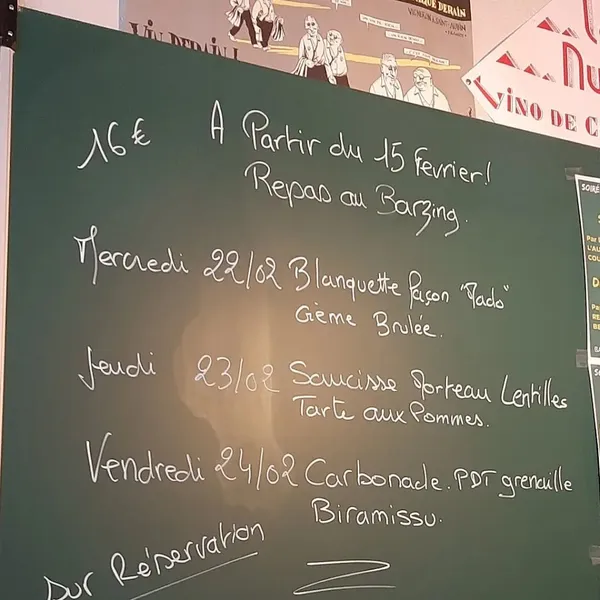 VIN DERAIN!
QUE DERAIN
VINO DE C
16€
A Partir du 15 Fevrier!
Repas au Barzing.
Mercredi 22/02 Blanquette façon "Mado"
Crème Brulée.
Jeudi 23/02 Saucisse Morteau Lentilles
Tarte aux Pommes.
Vendredi 24/02 Carbonade. PDT grenaille
Biramissu.
Sur Réservation
SOIRÉ